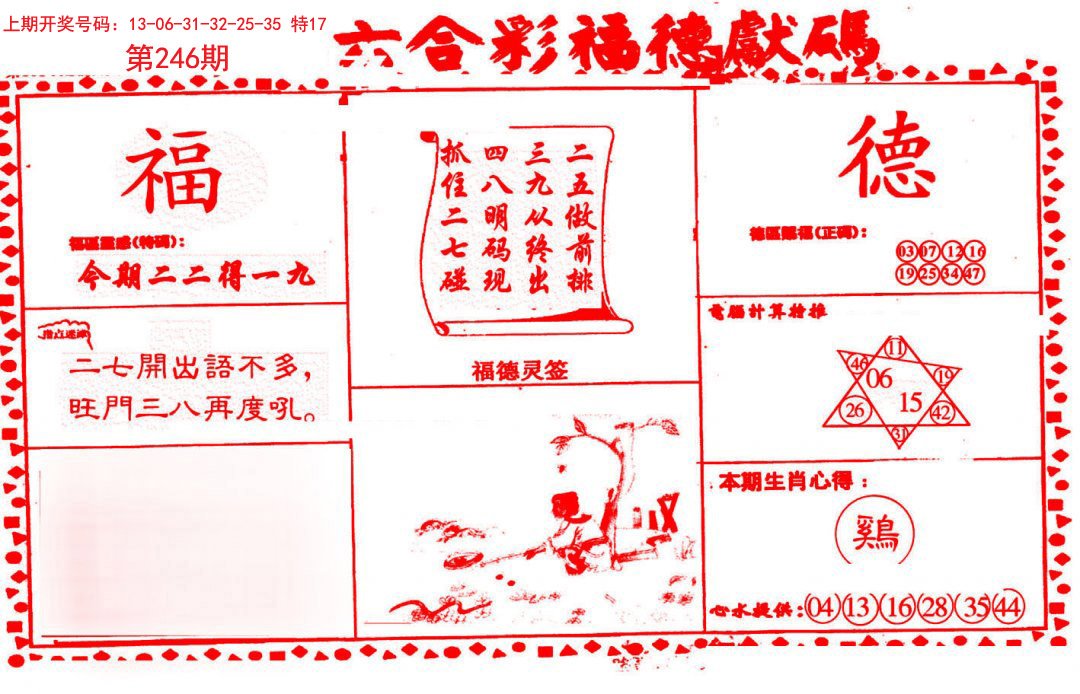 上期开奖号码：13-06-31-32-25-35 特17
第246期
六合彩福德獻碼
福
福區靈感(特碼)：
今期二二得一九
指点迷津
二七開出語不多，
旺門三八再度吼。
二五做前排
三九从终出
四八明码现
抓住二七碰
福德灵签
德
德區賜福(正碼)：
03 07 12 16
19 25 34 47
電腦計算特推
11
46 19
06
15
26 42
31
本期生肖心得：
鷄
心水提供：04 13 16 28 35 44